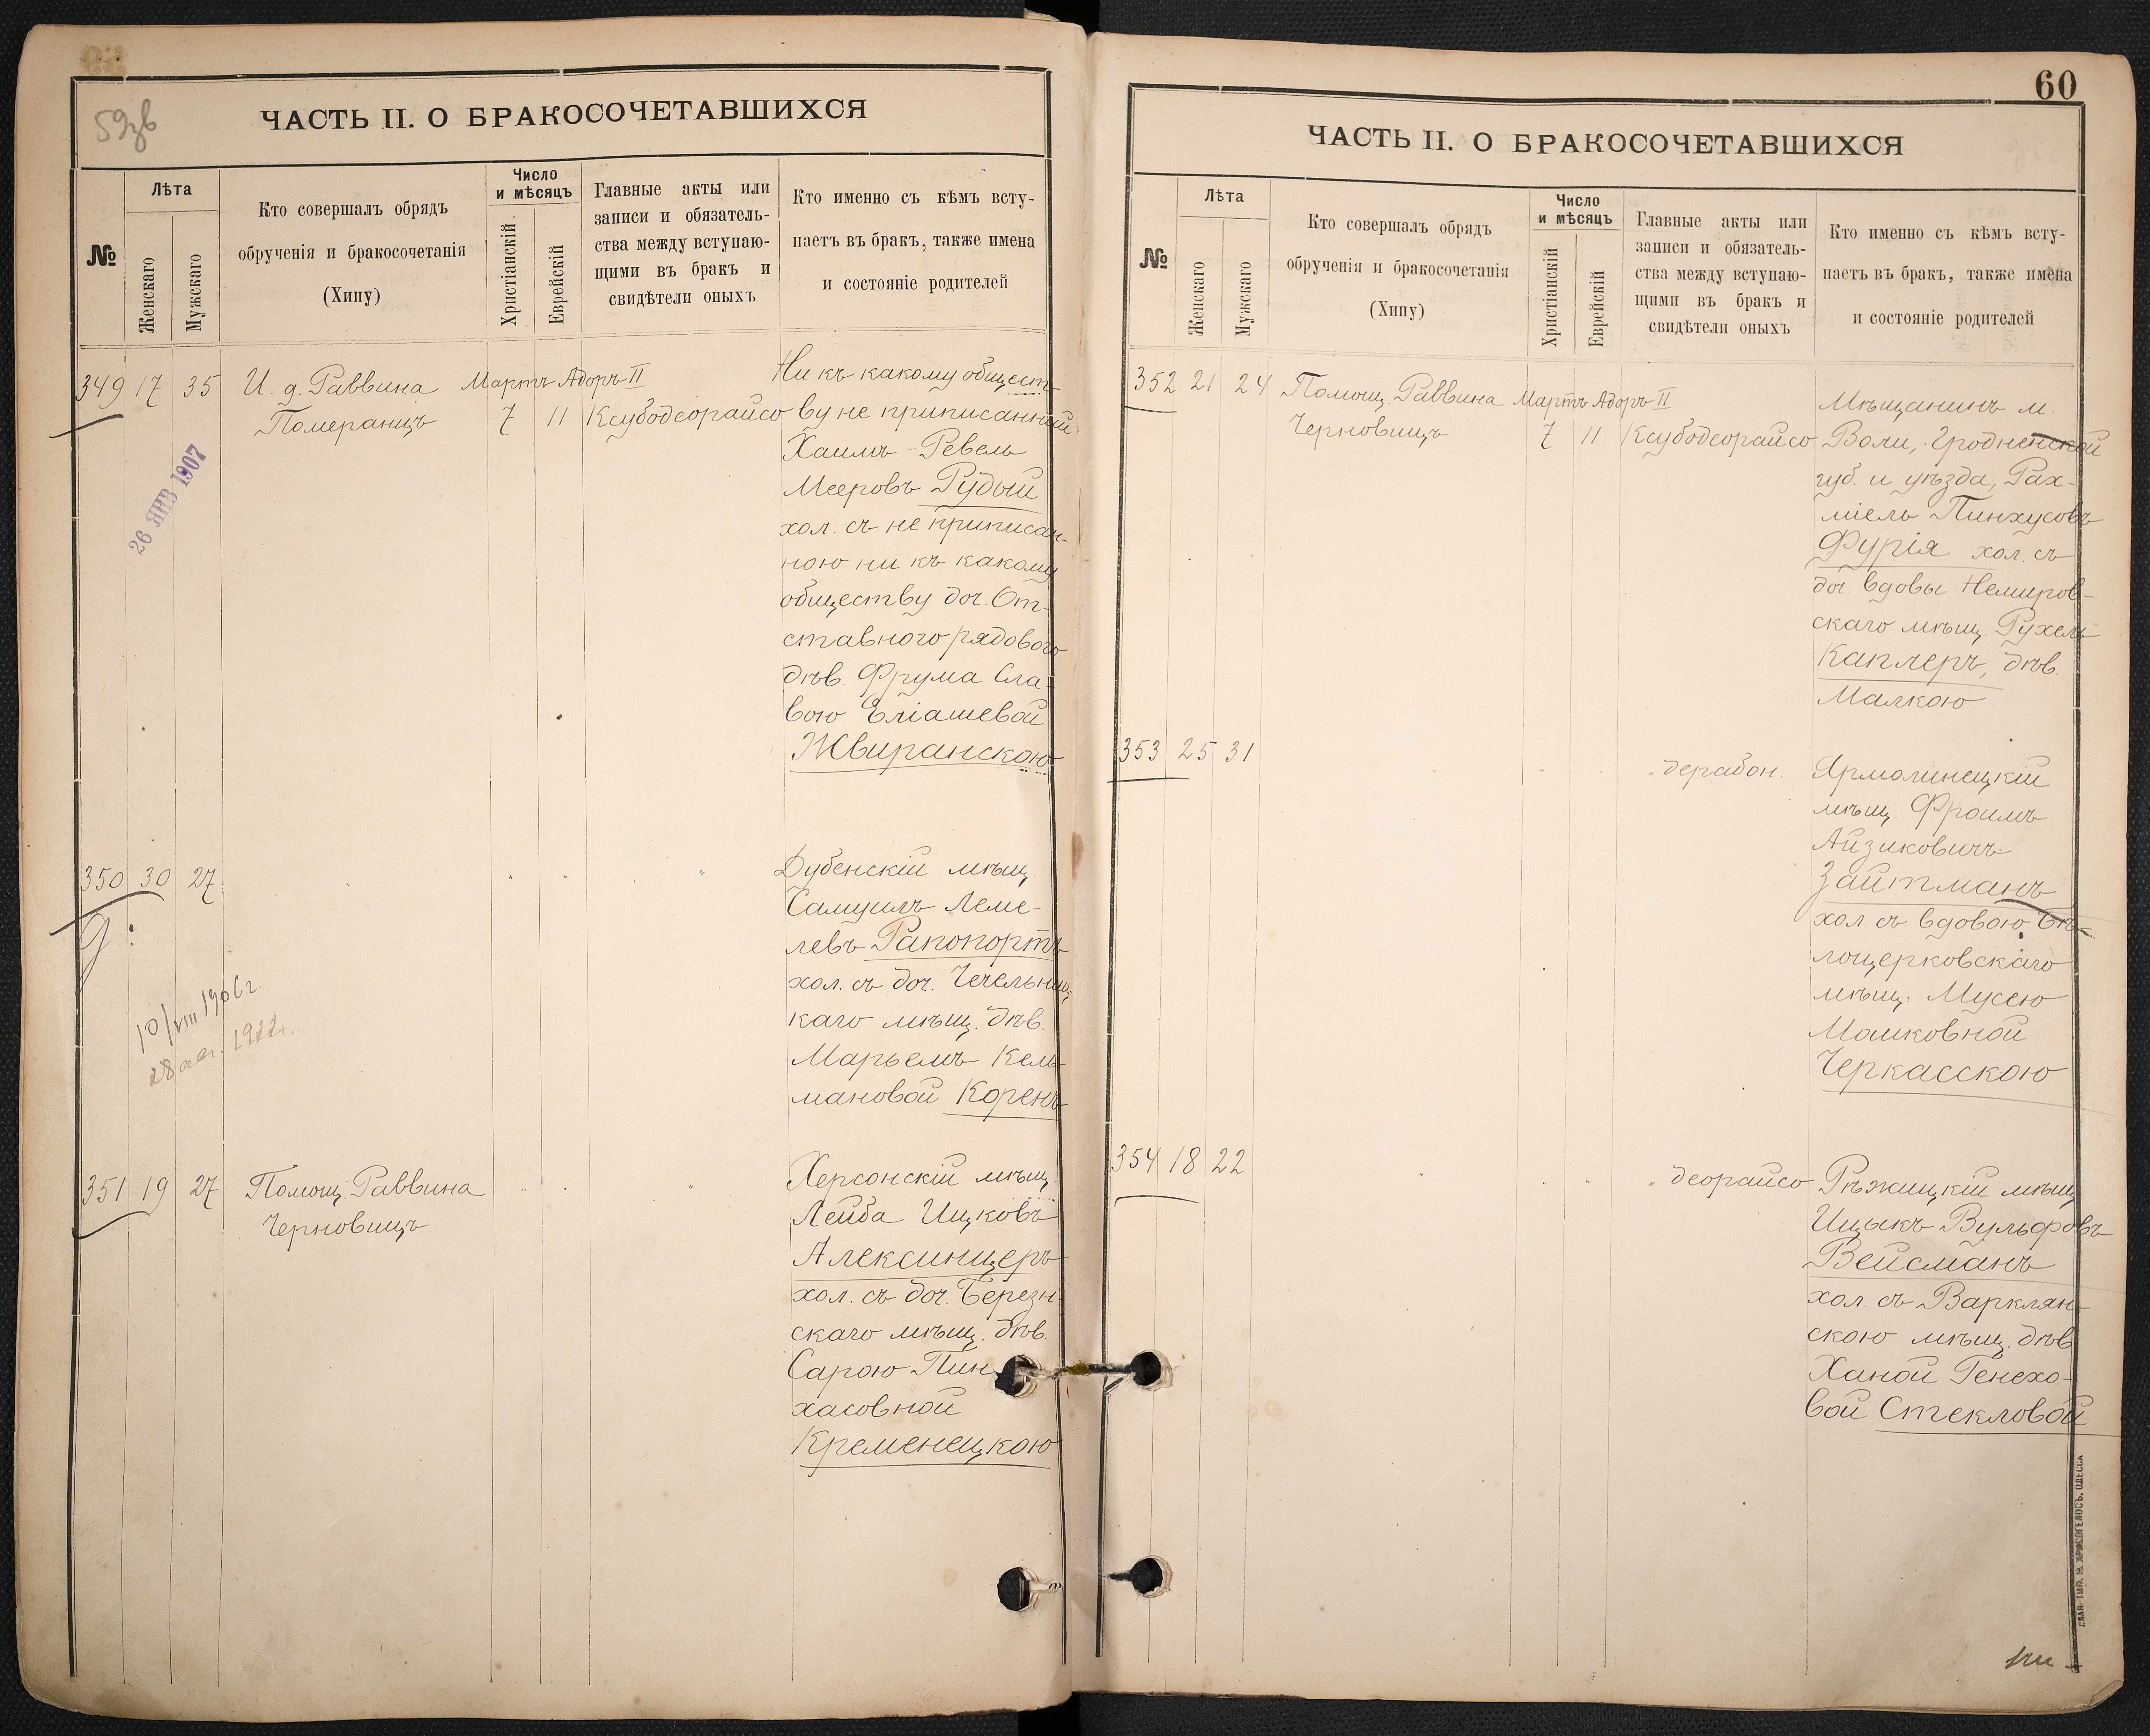 59зв
ЧАСТЬ II. О БРАКОСОЧЕТАВШИХСЯ
№
Лѣта
Женскаго
Мужскаго
Кто совершалъ обрядъ
обрученія и бракосочетанія
(Хипу)
Число
и мѣсяцъ
Христіанскій
Еврейскій
Главные акты или
записи и обязатель-
ства между вступаю-
щими въ бракъ и
свидѣтели оныхъ
Кто именно съ кѣмъ всту-
паетъ въ бракъ, также имена
и состояніе родителей
349 17 35 И. д. Раввина Мартъ Адоръ II Ни къ какому общест-
Померанцъ 7 11 Ксубодеорайсо ву не приписанный
Хаимъ-Ревель
Мееровъ Рудый
хол. съ не приписан-
ною ни къ какому
обществу доч. От-
ставного рядового
дѣв. Фрума Сла-
вою Еліашевой
Жвиранскою
26 ЯНВ 1907
350 30 27 " " " " Дубенскій мѣщ.
Самуилъ Леме-
левъ Рапопортъ
хол. съ доч. Чечельниц-
каго мѣщ. дѣв.
Марьемъ Кель-
мановой Корень
10/VIII 1906 г.
28 авг. 1922 г.
351 19 27 Помощ. Раввина " " " Херсонскій мѣщ.
Черновицъ Лейба Ицковъ
Алексинцеръ
хол. съ доч. Березн-
скаго мѣщ. дѣв.
Сарою Пин
хасовной
Кременецкою
60
ЧАСТЬ II. О БРАКОСОЧЕТАВШИХСЯ
№
Лѣта
Женскаго
Мужскаго
Кто совершалъ обрядъ
обрученія и бракосочетанія
(Хипу)
Число
и мѣсяцъ
Христіанскій
Еврейскій
Главные акты или
записи и обязатель-
ства между вступаю-
щими въ бракъ и
свидѣтели оныхъ
Кто именно съ кѣмъ всту-
паетъ въ бракъ, также имена
и состояніе родителей
352 21 24 Помощ. Раввина Мартъ Адоръ II Мѣщанинъ м.
Черновицъ 7 11 Ксубодеорайсо Воли, Гродненской
губ. и уѣзда, Рах-
міель Пинхусовъ
Фурія хол. съ
доч. вдовы Немиров-
скаго мѣщ. Рухель
Каплеръ, дѣв.
Малкою
353 25 31 " " " дерабон. Ярмолинецкій
мѣщ. Фроимъ
Айзиковичъ
Зайтманъ
хол. съ вдовою Бѣ-
лоцерковскаго
мѣщ. Мусею
Мошковной
Черкасскою
354 18 22 " " " " деорайсо Рѣжицкій мѣщ.
Ицыкъ Вульфовъ
Вейсманъ
хол. съ Варклян-
скою мѣщ. дѣв.
Ханой Генехо-
вой Стекловой
СЛАВ. ТИП. Н. ХРИСОГЕЛОСЪ, ОДЕССА